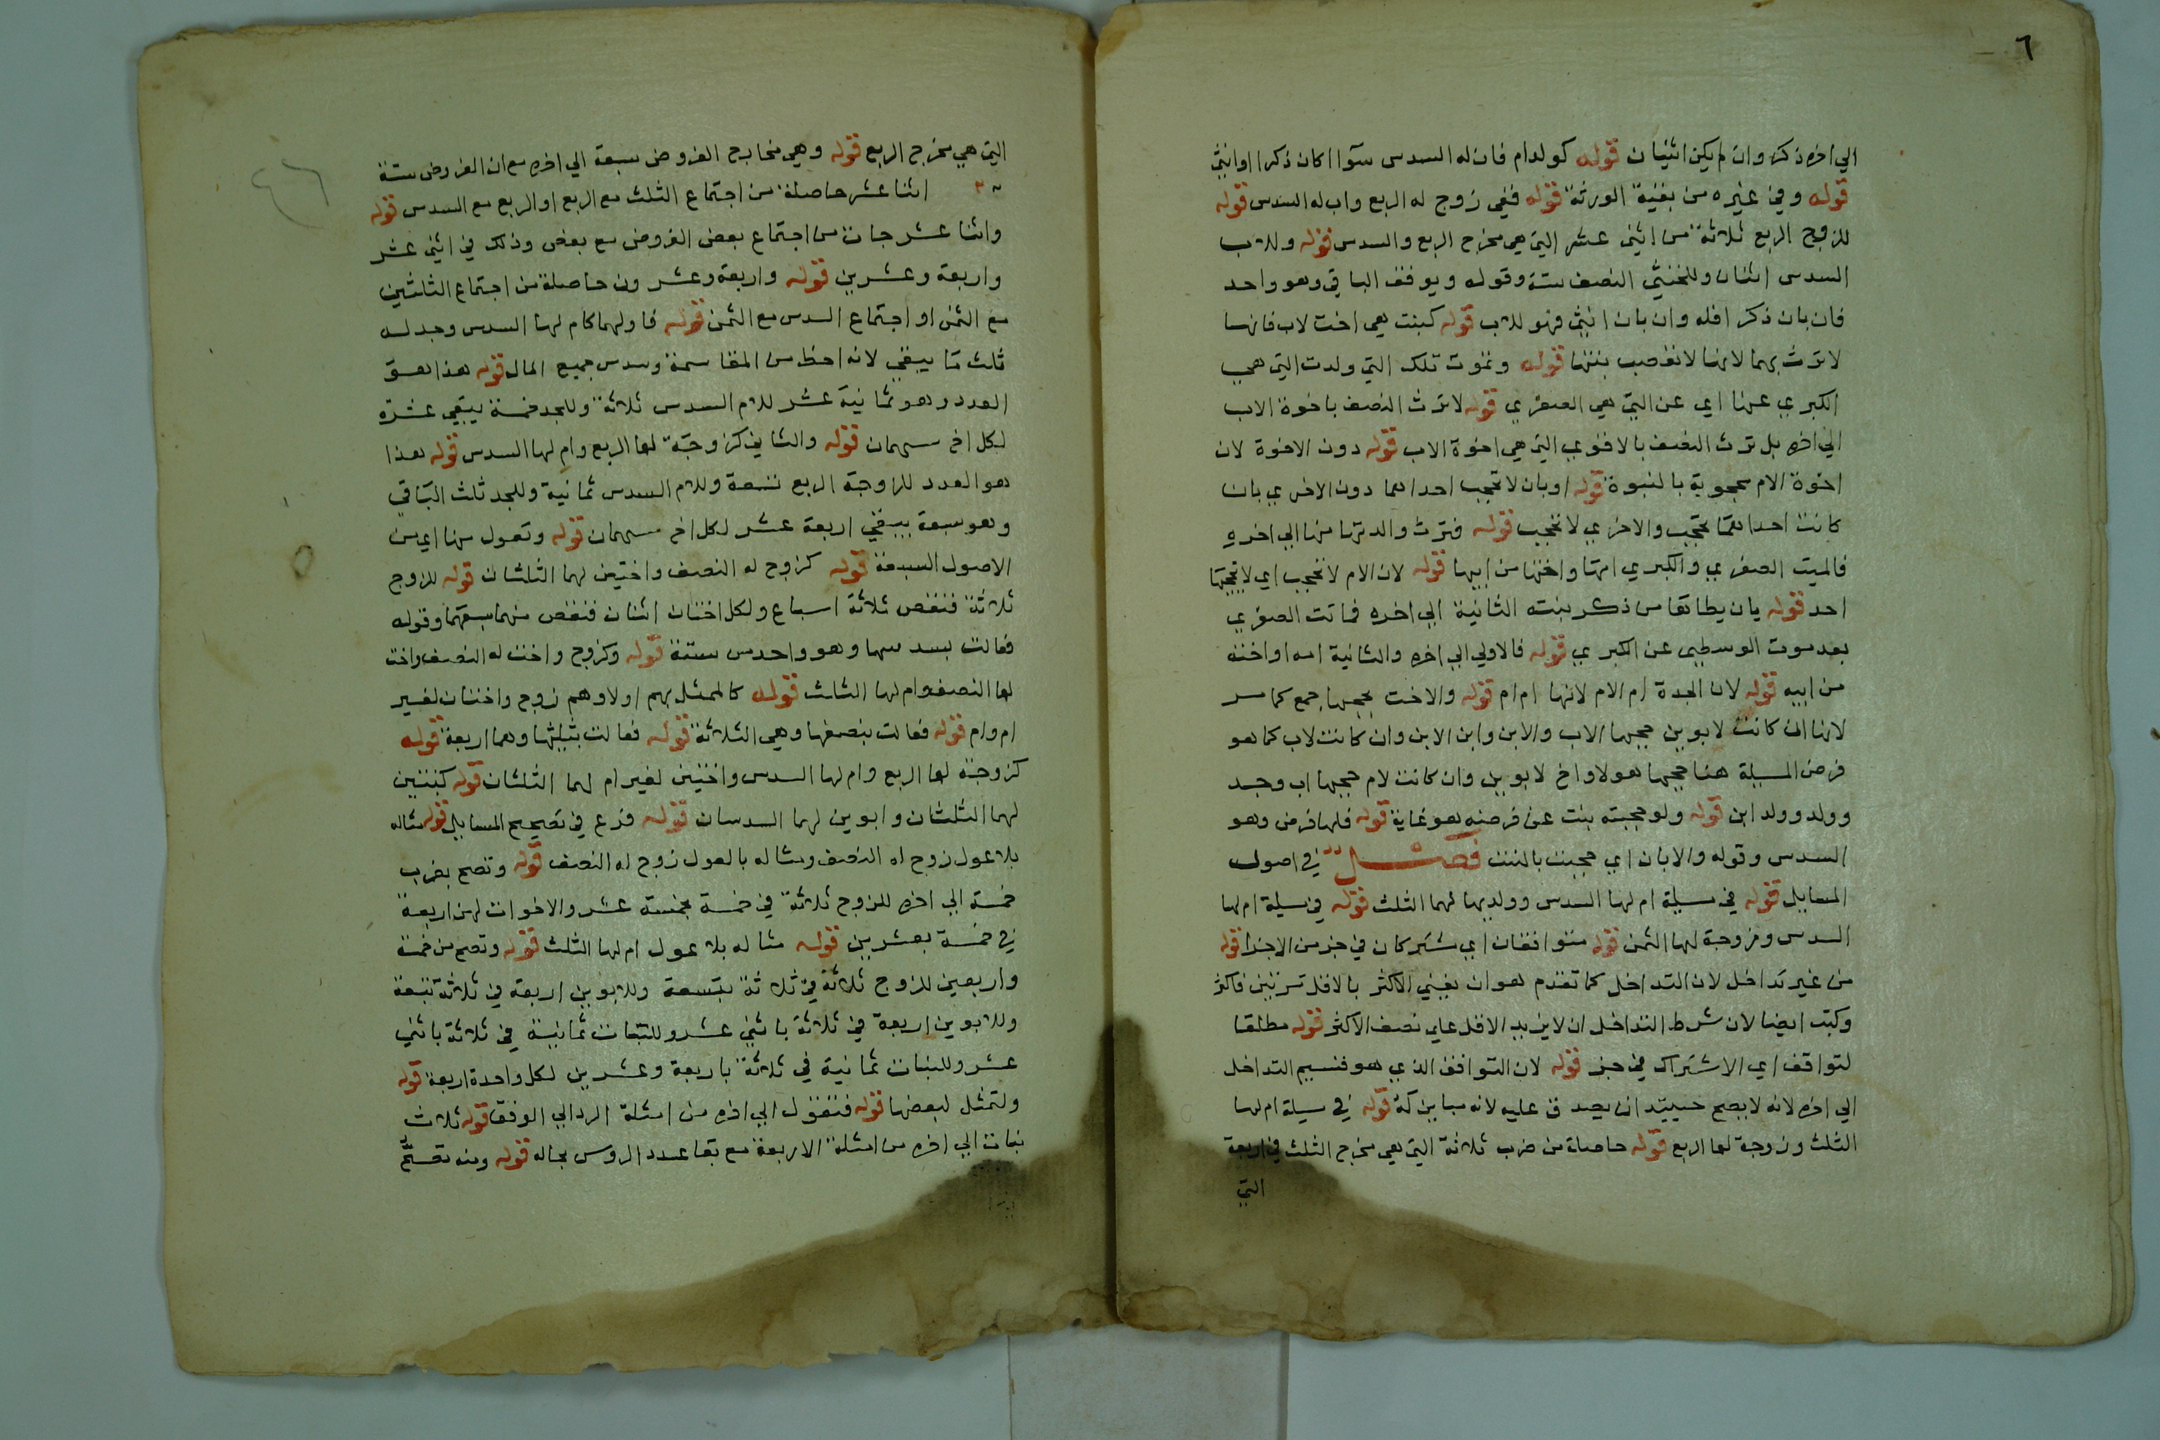 ٦
الي اخره ذكره وان لم يكن اثنيان قوله كولدام فان له السدس سوآا كان ذكرا اوانثي
قوله وفي غيره من بقية الورثة قوله ففي زوج له الربع واب له السدس قوله
للزوج الربع ثلاثة من اثني عشر التي هي مخرج الربع والسدس قوله وللاب
السدس اثنان وللخنثي النصف ستة وقوله ويوقف الباقي وهو واحد
فان بان ذكرا فله وان بان انثي فهو للاب قوله كبنت هي اخت لاب فانها
لا ترث بهما لانها لا تعصب بنتها قوله وتموت تلك التي ولدت التي هي
الكبري عنها اي عن التي هي الصغري قوله لا ترث النصف باخوة الاب
الي اخره بل ترث النصف بالاقوي التي هي اخوة الاب قوله دون الاخوة لان
اخوة الام محجوبة بالبنوة قوله اوبان لا تحجب احداهما دون الاخري بان
كانت احداهما تحجب والاخري لا تحجب قوله فترث والدتها منها الي اخره
فالميت الصغري والكبري امها واختها من ابيها قوله لان الام لا تحجب اي لا يحجبها
احد قوله بان يطا تقا من ذكر بنته الثانية الي اخره فماتت الصغري
بعد موت الوسطي عن الكبري قوله فالاولي الي اخره والثانية امه اواخته
من ابيه قوله لان الجدة ام الام لانها ام ام قوله والاخت يحجبها جمع كما مر
لانها ان كانت لابوين حجبها الاب والابن وابن الابن وان كانت لاب كما هو
فرض المسيلة هنا حجبها هولا واخ لابوين وان كانت لام حجبها اب وجد
وولد وولد ابن قوله ولو حجبته بنت عن فرضه هو غاية قوله فلها فرض وهو
السدس وقوله والا بان اي حجبت بالبنت فصل في اصول
المسايل قوله في مسيلة ام لها السدس وولديها لهما الثلث قوله في مسيلة ام لها
السدس وزوجة لها الثمن قوله متوافقان اي مشتركان في جز من الاجزا قوله
من غير تداخل لان التداخل كما تقدم هو ان يفني الاكثر بالاقل مرتين فاكثر
وكتب ايضا لان شرط التداخل ان لا يزيد الاقل علي نصف الاكثر قوله مطلقا
لتوافق اي الاشتراك في جز قوله لان التوافق الذي هو قسيم التداخل
الي اخره لانه لا يصح حينيذ ان يصدق عليه لانه مباين له قوله في مسيلة ام لها
الثلث وزوجة لها الربع قوله حاصلة من ضرب ثلاثة التي هي مخرج الثلث في اربعة
التي
التي هي مخرج الربع قوله وهي مخارج الفروض سبعة الي اخره مع ان الفروض ستة
اثنا عشر حاصلة من اجتماع الثلث مع الربع او الربع مع السدس قوله
واثنا عشر جات من اجتماع بعض الفروض مع بعض وذلك في اثني عشر
واربعة وعشرين قوله واربعة وعشرون حاصلة من اجتماع الثلثين
مع الثمن او اجتماع السدس مع الثمن قوله فاولهما كام لها السدس وجد له
ثلث ما يبقي لانه احظ من المقاسمة وسدس جميع المال قوله هذا هو
العدد وهو ثمانية عشر للام السدس ثلاثة وللجد خمسة يبقي عشرة
لكل اخ سهمان قوله والثاني كزوجة لها الربع وام لها السدس قوله هذا
هو العدد للزوجة الربع تسعة وللام السدس ثمانية وللجد ثلث الباقي
وهو سبعة يبقي اربعة عشر لكل اخ سهمان قوله وتعول منها اي من
الاصول السبعة قوله كزوج له النصف واختين لهما الثلثان قوله للزوج
ثلاثة فنقص ثلاثة اسباع ولكل اختان اثنان فنقص منهما سبعهما وقوله
فعالت بسدسها وهو واحد من ستة قوله وكزوج واخت له النصف واخت
لها النصف وام لها الثلث قوله كالممثل بهم اولا وهم زوج واختان لغير
ام وام قوله فعالت بنصفها وهي الثلاثة قوله فعالت بثلثها وهما اربعة قوله
كزوجة لها الربع وام لها السدس واختين لغير ام لهما الثلثان قوله كبنتين
لهما الثلثان وابوين لهما السدسان قوله فرع في تصحيح المسايل قوله مثاله
بلا عول زوج له النصف ومثاله بالعول زوج له النصف قوله وتصح بضرب
خمسة الي اخره للزوج ثلاثة في خمسة بخمسة عشر والاخوات لهن اربعة
في خمسة بعشرين قوله مثاله بلا عول ام لها الثلث قوله وتصح من خمسة
واربعين للزوج ثلاثة في ثلاثة بتسعة وللابوين اربعة في ثلاثة تسعة
وللابوين اربعة في ثلاثة باثني عشر وللبنات ثمانية في ثلاثة باثني
عشر وللبنات ثمانية في ثلاثة باربعة وعشرين لكل واحدة اربعة قوله
ولتمثل لبعضها قوله فنقول الي اخره من امثلة الرد الي الوفق قوله ثلاث
بنات الي اخره من امثلة الاربعة مع بقا عدد الروس بحاله قوله ومنه تصح